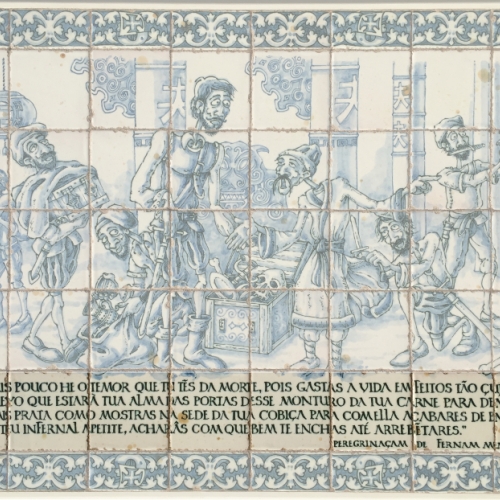 IS POUCO HE O TEMOR QUE TU TẼS DA MORTE, POIS GASTAS A VIDA EM FEITOS TÃO ÇU
EVO QUE ESTARÁ TUA ALMA DAS PORTAS DESSE MONTURO DA TUA CARNE PARA DEN
IS PRATA COMO MOSTRAS NA SEDE DA TUA COBIÇA PARA COM ELLA ACABARES DE EN
TEU INFERNAL APETITE, ACHARÁS COM QUE BEM TE ENCHAS ATÉ ARREBETARES."
PEREGRINAÇAM DE FERNAM M